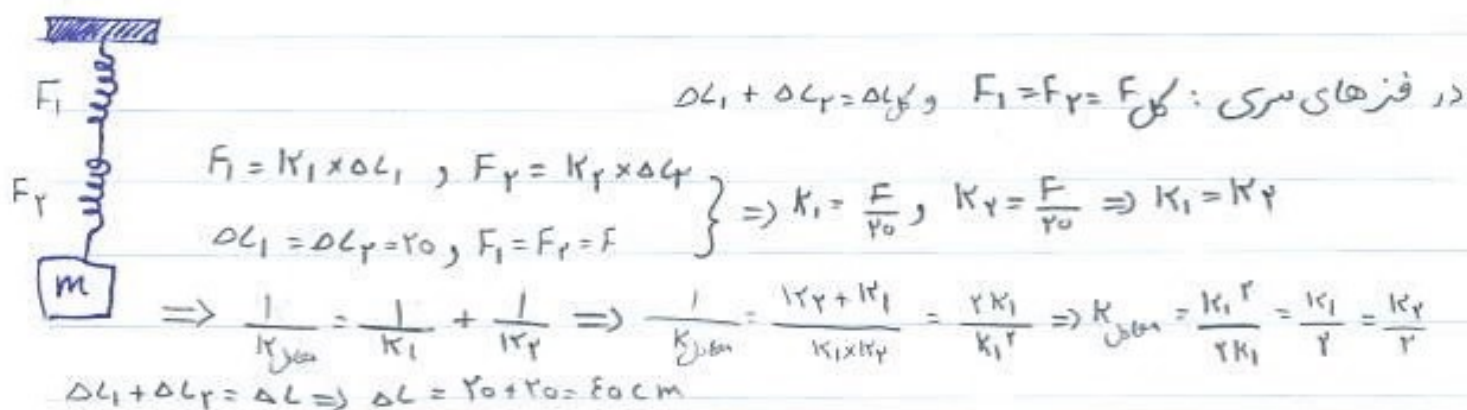 در فنرهای سری : F₁ = F₂ = F کل و ΔL₁ + ΔL₂ = ΔL کل
F₁
F₁ = K₁ × ΔL₁ , F₂ = K₂ × ΔL₂
F₂
ΔL₁ = ΔL₂ = ۲۰ , F₁ = F₂ = F } => K₁ = F/۲۰ , K₂ = F/۲۰ => K₁ = K₂
m
=> 1/K معادل = 1/K₁ + 1/K₂ => 1/K معادل = (K₂ + K₁)/(K₁ × K₂) = ۲K₁/K₁² => K معادل = K₁²/۲K₁ = K₁/۲ = K₂/۲
ΔL₁ + ΔL₂ = ΔL => ΔL = ۲۰ + ۲۰ = ٤۰ cm